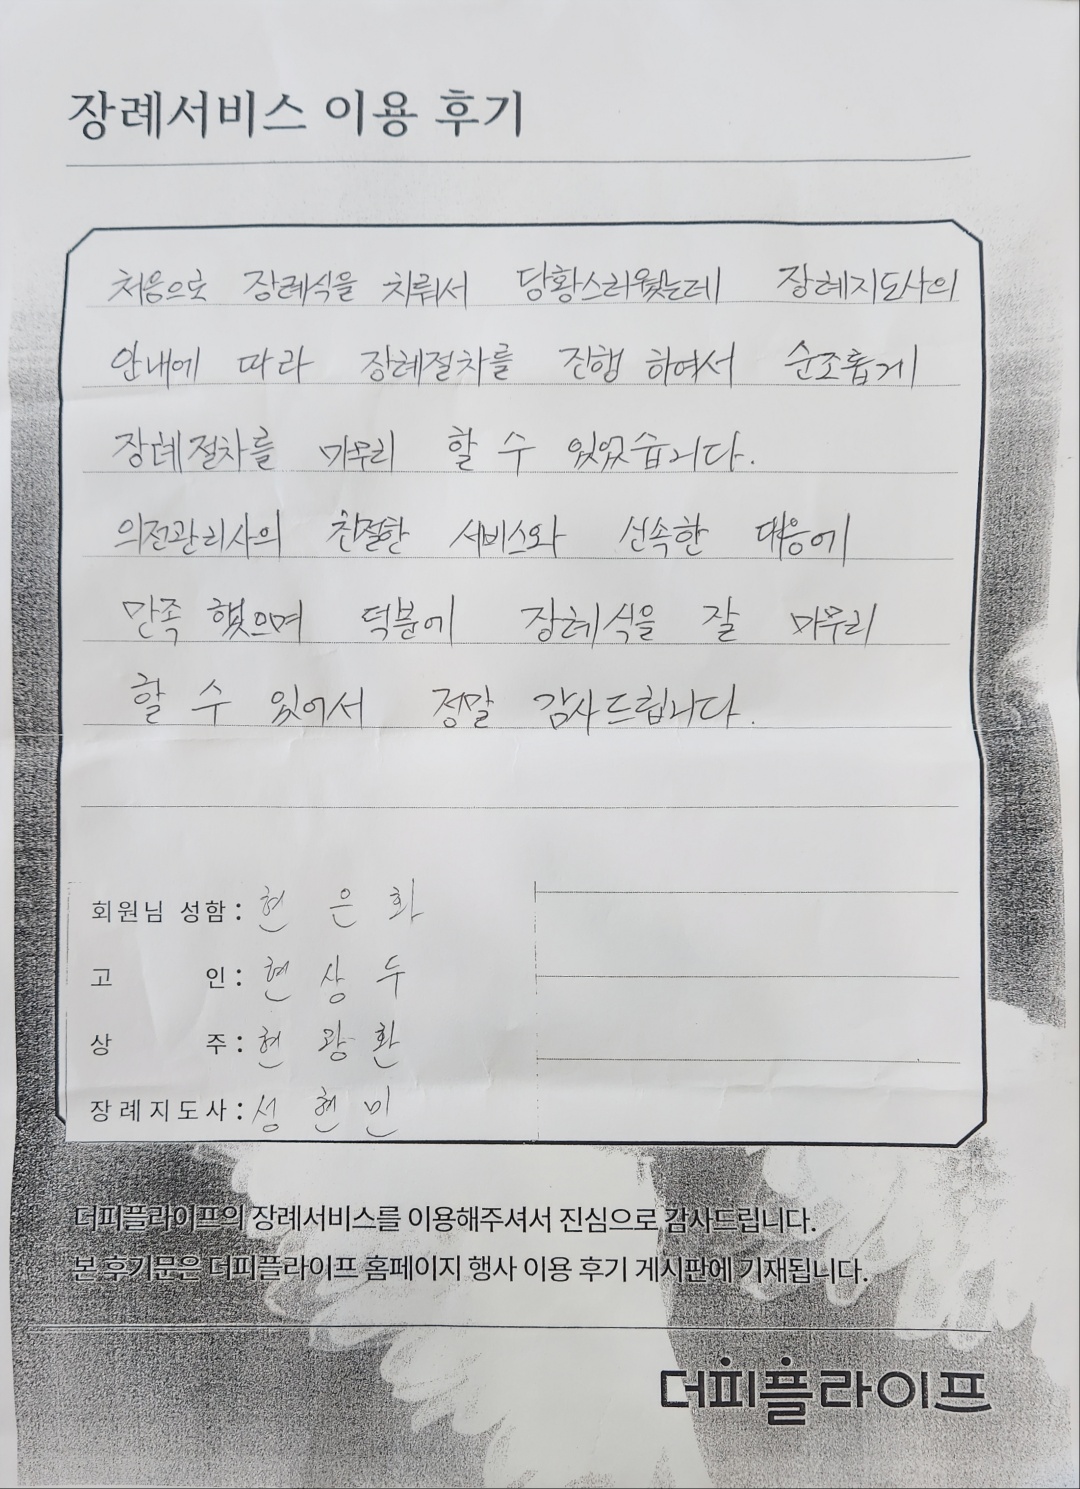 장례서비스 이용 후기
처음으로 장례식을 치뤄서 당황스러웠는데 장례지도사의
안내에 따라 장례절차를 진행 하여서 순조롭게
장례절차를 마무리 할 수 있었습니다.
의전관리사의 친절한 서비스와 신속한 대응에
만족 했으며 덕분에 장례식을 잘 마무리
할 수 있어서 정말 감사드립니다.
회원님 성함 : 현 은 화
고 인 : 현 상 두
상 주 : 현 광 환
장례지도사 : 성 현 민
더피플라이프의 장례서비스를 이용해주셔서 진심으로 감사드립니다.
본 후기문은 더피플라이프 홈페이지 행사 이용 후기 게시판에 기재됩니다.
더피플라이프